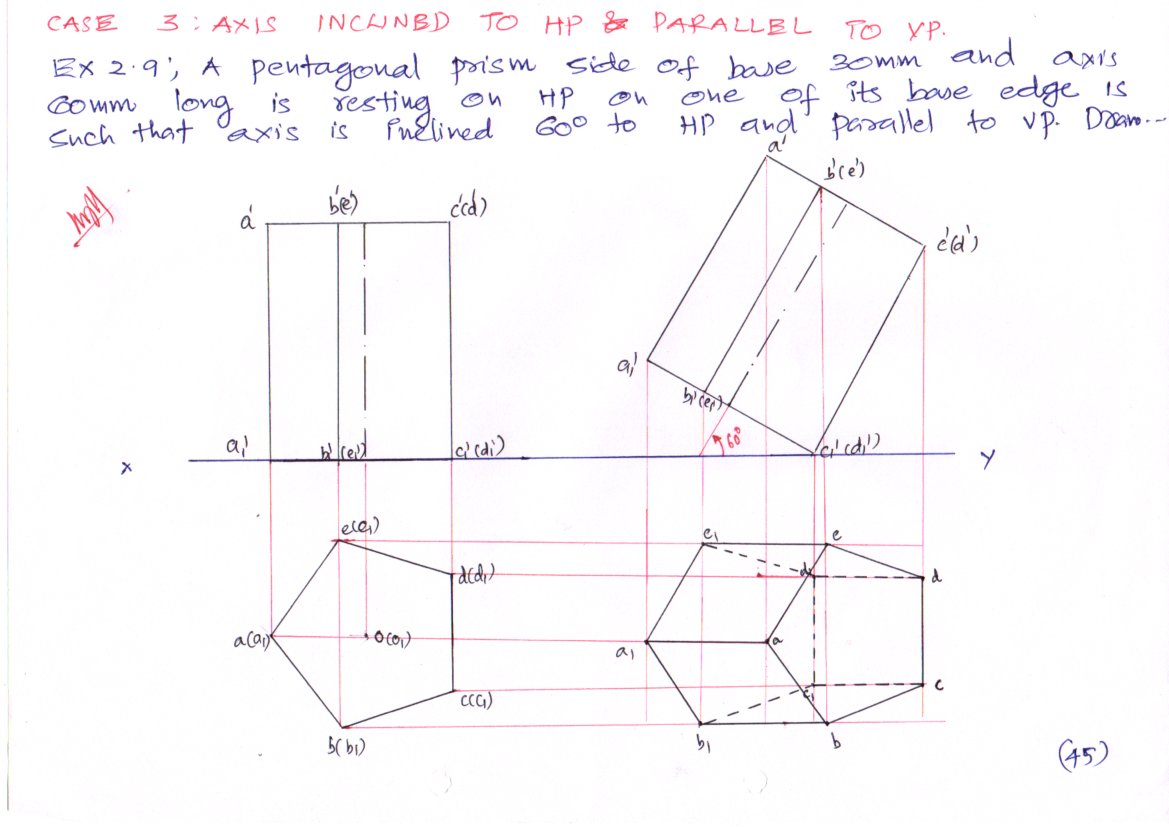 CASE 3: AXIS INCLINED TO HP & PARALLEL TO VP.
EX 2.9; A pentagonal prism side of base 30mm and axis
60mm long is resting on HP on one of its base edge is
such that axis is inclined 60° to HP and parallel to VP. Draw...
a'
b'(e')
b'(e')
c'(d)
a'
c'(d')
a₁'
b₁'(e₁')
60°
a₁'
b'(e₁')
c₁'(d₁')
c₁'(d₁')
X
Y
e(e₁)
e₁
e
d(d₁)
d₁
d
a(a₁)
o(o₁)
a₁
a
c(c₁)
c₁
c
b(b₁)
b₁
b
(45)